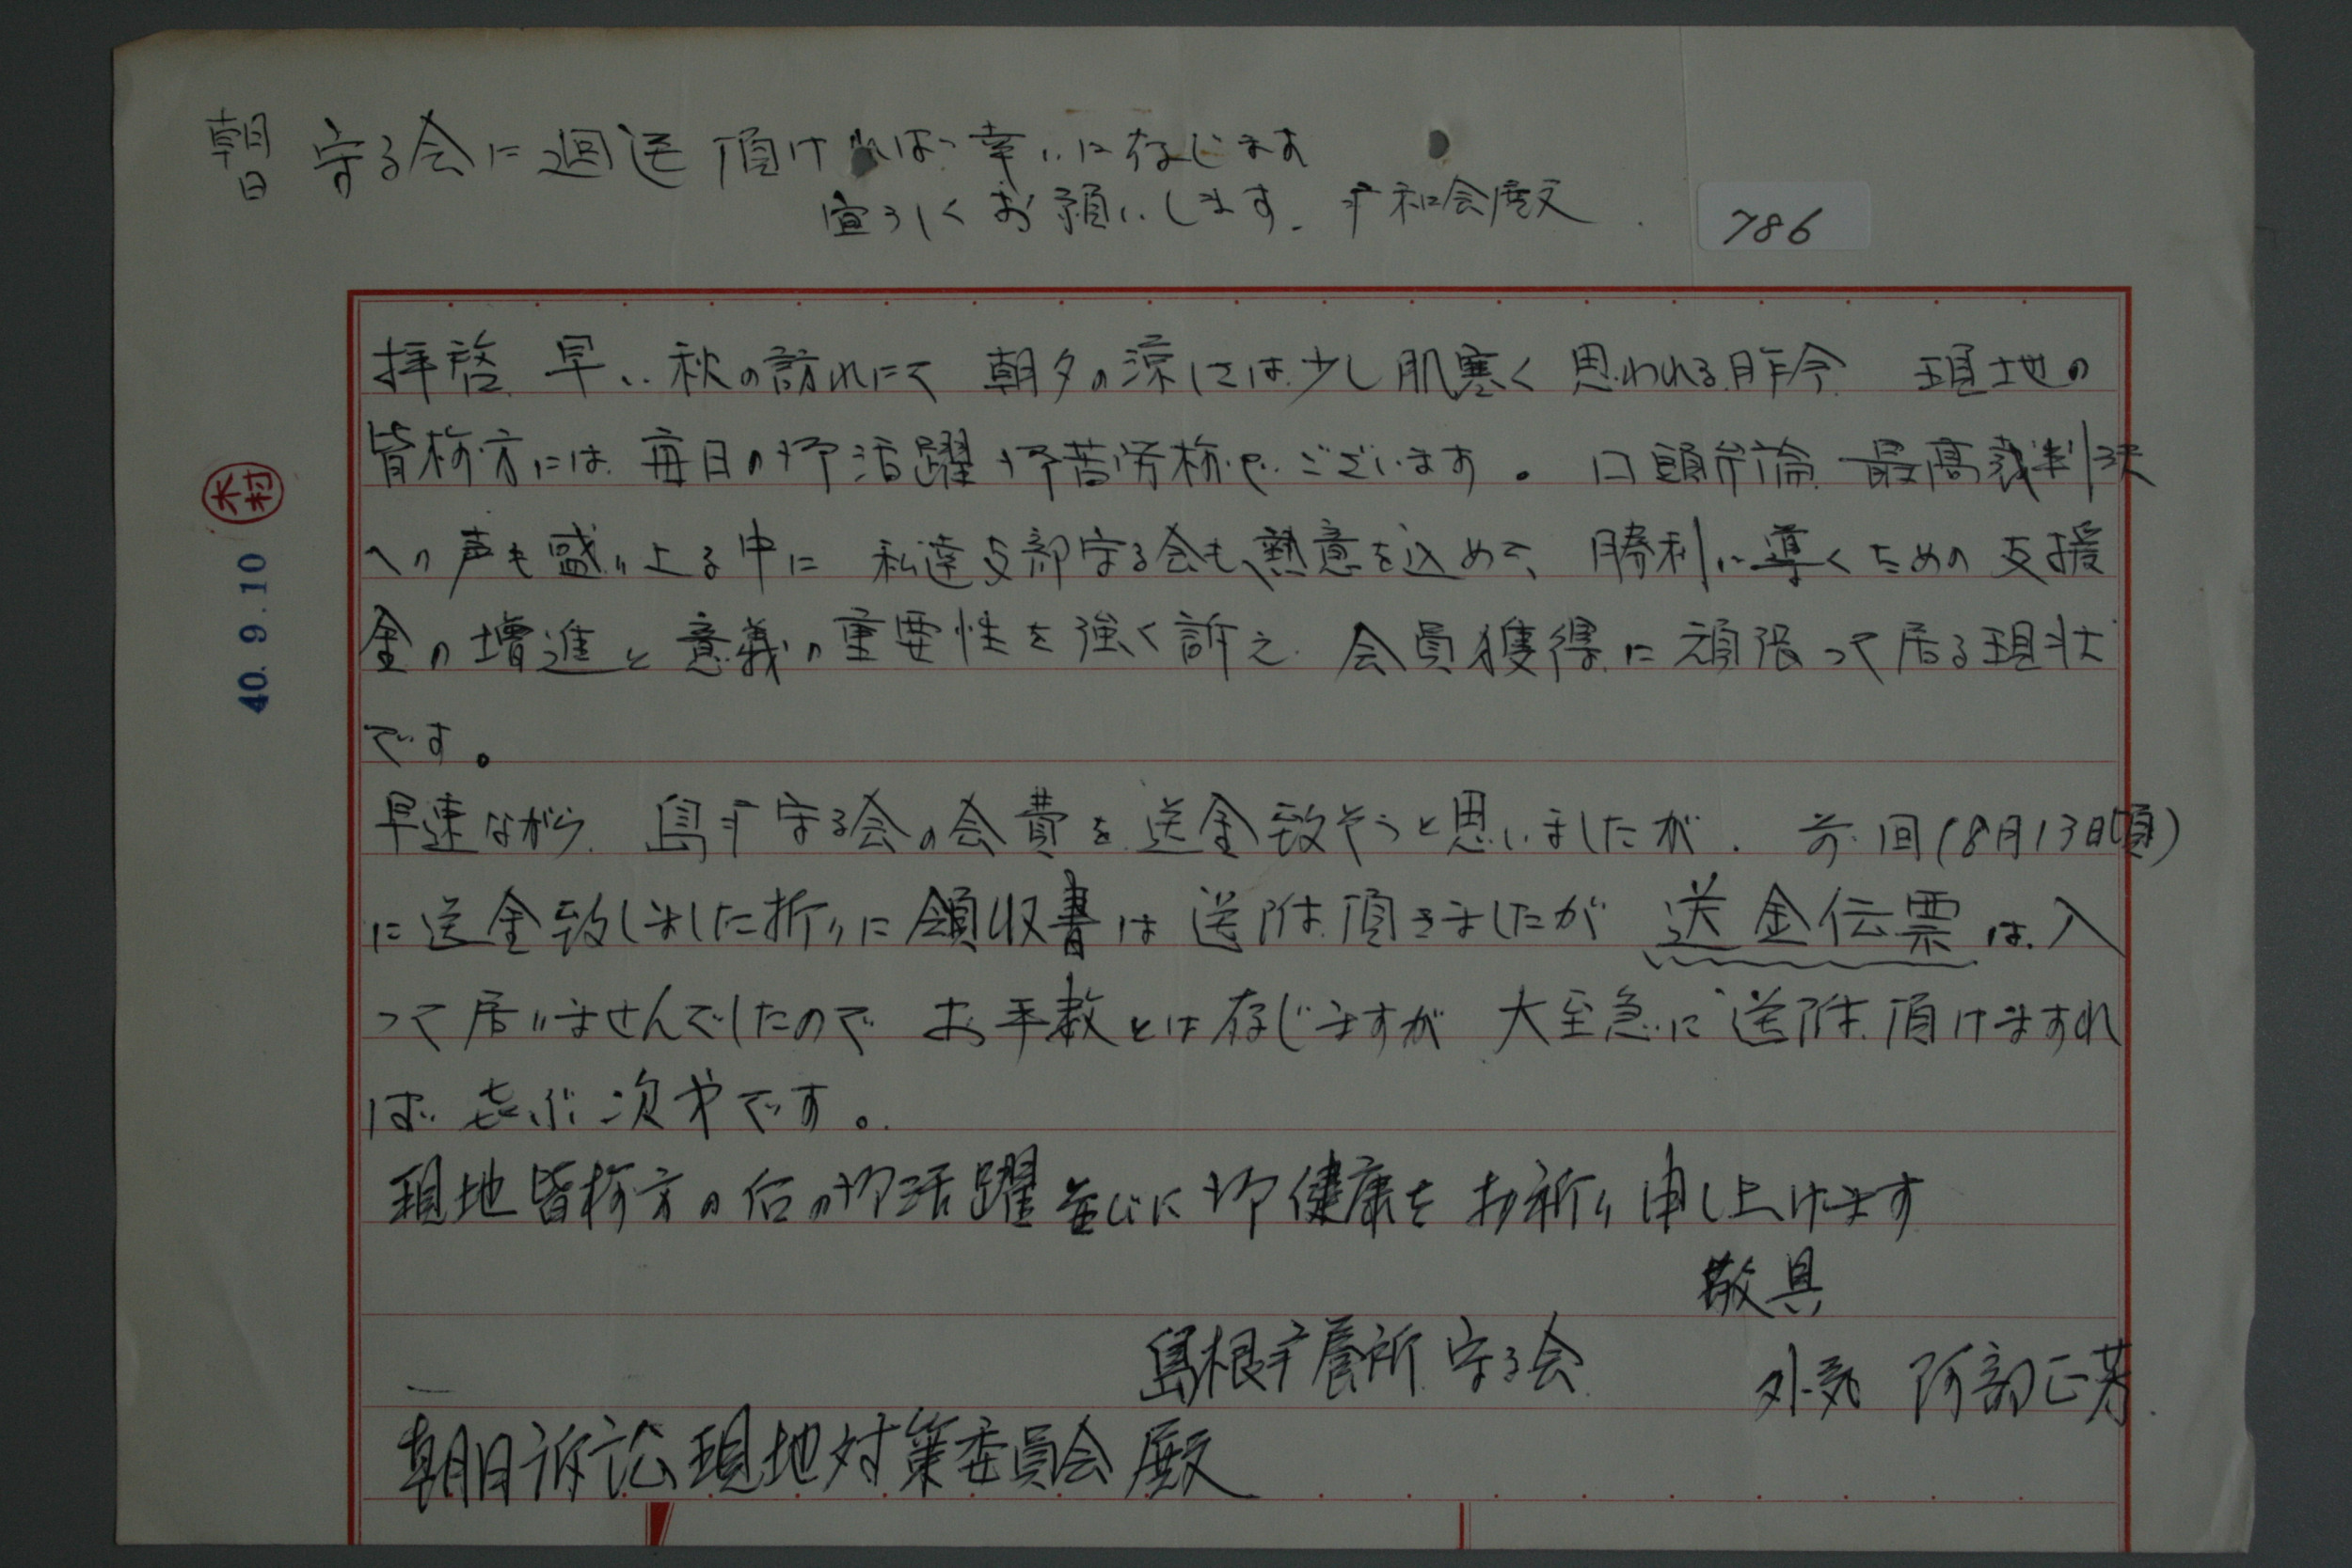 朝日 守る会に廻送 頂ければ幸いに存じます
宜ろしくお願いします. 療和会殿
786
拝啓 早い秋の訪れにて 朝夕の涼しさは少し肌寒く思われる昨今 現地の
皆様方には毎日の御活躍御苦労様でございます。口頭弁論 最高裁判決
への声も盛り上る中に 私達支部守る会も、熱意を込めて、勝利に導くための支援
金の増進と意義の重要性を強く訴え 会員獲得に頑張って居る現状
です。
早速ながら、島療守る会の会費を送金致そうと思いましたが. 前回(8月13日頃)
に送金致しました折りに領収書は送附頂きましたが 送金伝票は入
って居りませんでしたので お手数とは存じますが 大至急に送附頂けますれ
ば 喜ぶ次才です。
現地皆様方の后の御活躍並びに御健康をお祈り申し上げます
敬具
島根療養所 守る会 外気 阿部正芳.
朝日訴訟現地対策委員会殿
木村
40.9.10